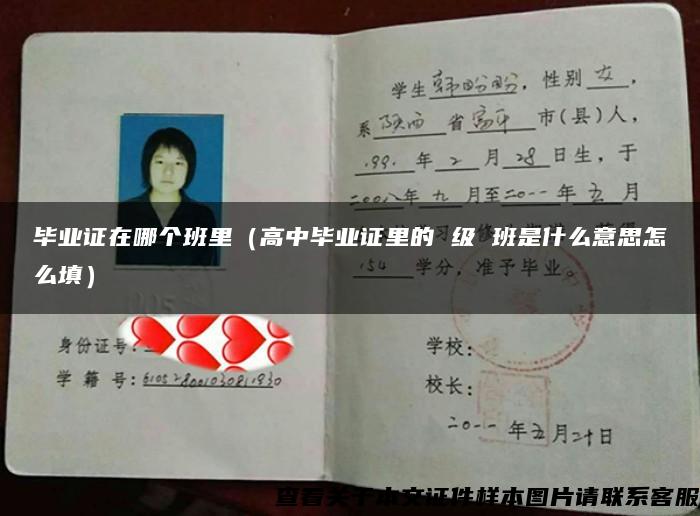 学生韩盼盼，性别女，
系陕西省富平市(县)人，
1991年2月28日生，于
二00八年九月至二0一一年五月
毕业证在哪个班里（高中毕业证里的 级 班是什么意思怎
么填）
154学分，准予毕业。
身份证号：
学籍号：
学校：
校长：
二0一一年五月二十日
查看关于本文证件样本图片请联系客服